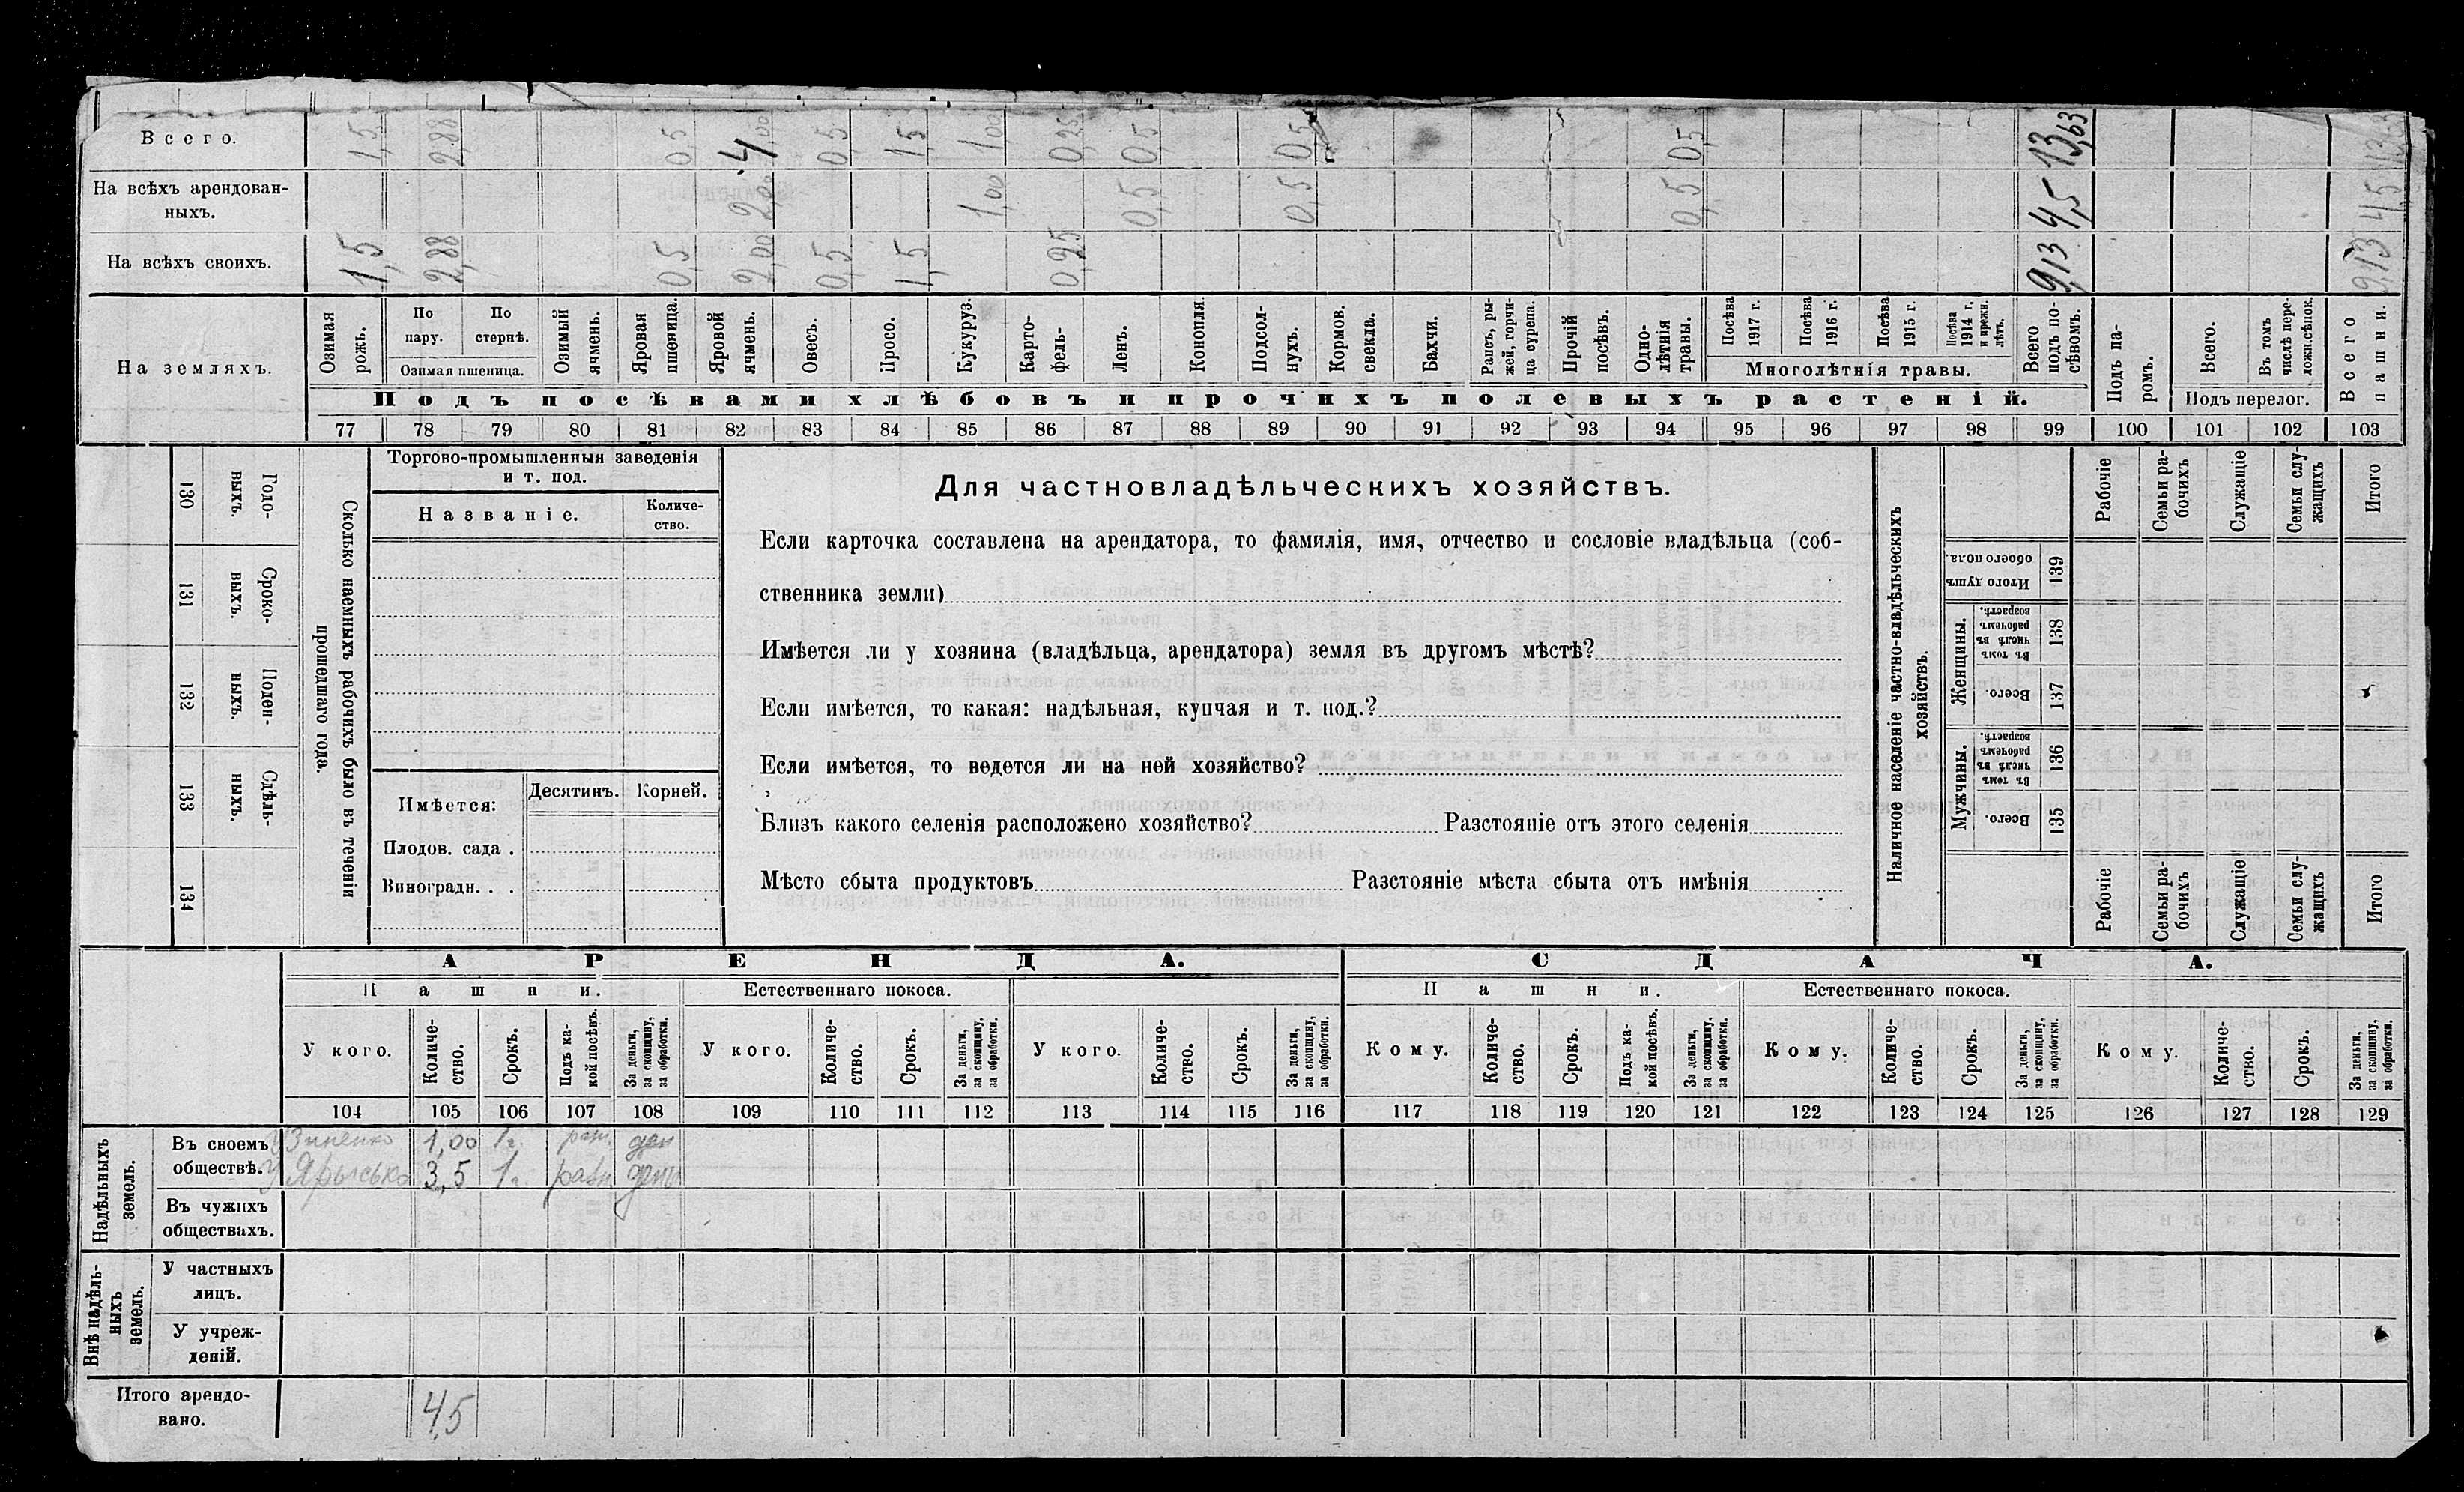 Всего. 1,5 2,88 0,5 4,00 0,5 1,5 1,00 0,25 0,5 0,5 0,5 13,63 13,63
На всѣхъ арендован-
ныхъ. 2,00 1,00 0,5 0,5 0,5 4,5 4,5
На всѣхъ своихъ. 1,5 2,88 0,5 2,00 0,5 1,5 0,25 9,13 9,13
На земляхъ.
Озимая рожь.
По пару.
По стернѣ.
Озимая пшеница.
Озимый ячмень.
Яровая пшеница.
Яровой ячмень.
Овесъ.
Просо.
Кукуруз.
Карто-
фель.
Ленъ.
Конопля.
Подсол-
нухъ.
Кормов. свекла.
Бахчи.
Рапсъ, ры-
жей, горчи-
ца сурепа.
Прочій посѣвъ.
Одно-
лѣтнія травы.
Посѣва 1917 г.
Посѣва 1916 г.
Посѣва 1915 г.
Посѣва 1914 г. и прежн. лѣтъ.
Многолѣтнія травы.
Всего подъ по-
сѣвомъ.
Подъ па-
ромъ.
Всего.
Въ томъ числѣ пере-
ложн. сѣнок.
Подъ перелог.
Всего пашни.
Подъ посѣвами хлѣбовъ и прочихъ полевыхъ растеній.
77 78 79 80 81 82 83 84 85 86 87 88 89 90 91 92 93 94 95 96 97 98 99 100 101 102 103
130 Годо-
выхъ.
131 Сроко-
выхъ.
132 Поден-
ныхъ.
133 Сдѣль-
ныхъ.
134
Сколько наемныхъ рабочихъ было въ теченіи
прошедшаго года.
Торгово-промышленныя заведенія
и т. под.
Названіе.
Количе-
ство.
Имѣется:
Десятинъ. Корней.
Плодов. сада .
Виноградн. . .
Для частновладѣльческихъ хозяйствъ.
Если карточка составлена на арендатора, то фамилія, имя, отчество и сословіе владѣльца (соб-
ственника земли)
Имѣется ли у хозяина (владѣльца, арендатора) земля въ другомъ мѣстѣ?
Если имѣется, то какая: надѣльная, купчая и т. под.?
Если имѣется, то ведется ли на ней хозяйство?
Близъ какого селенія расположено хозяйство? Разстояніе отъ этого селенія
Мѣсто сбыта продуктовъ Разстояніе мѣста сбыта отъ имѣнія
Наличное населеніе частно-владѣльческихъ
хозяйствъ.
Рабочіе
Семьи ра-
бочихъ
Служащіе
Семьи слу-
жащихъ
Итого
Итого душъ обоего пола. 139
Женщины.
Въ томъ числѣ въ рабочемъ возрастѣ. 138
Всего. 137
Мужчины.
Въ томъ числѣ въ рабочемъ возрастѣ. 136
Всего. 135
Рабочіе
Семьи ра-
бочихъ
Служащіе
Семьи слу-
жащихъ
Итого
АРЕНДА. СДАЧА.
Пашни. Естественнаго покоса. Пашни. Естественнаго покоса.
У кого. Количе-
ство. Срокъ. Подъ ка-
кой посѣвъ. За деньги, за скопщину, за обработки.
У кого. Количе-
ство. Срокъ. За деньги, за скопщину, за обработки.
У кого. Количе-
ство. Срокъ. За деньги, за скопщину, за обработки.
Кому. Количе-
ство. Срокъ. Подъ ка-
кой посѣвъ. За деньги, за скопщину, за обработки.
Кому. Количе-
ство. Срокъ. За деньги, за скопщину, за обработки.
Кому. Количе-
ство. Срокъ. За деньги, за скопщину, за обработки.
104 105 106 107 108 109 110 111 112 113 114 115 116 117 118 119 120 121 122 123 124 125 126 127 128 129
Надѣльныхъ
земель.
Въ своемъ У Зиненко 1,00 1 г. разн. ден
обществѣ. У Ярысько 3,5 1 г. разн день
Въ чужихъ
обществахъ.
Внѣ надѣль-
ныхъ
земель.
У частныхъ
лицъ.
У учреж-
деній.
Итого арендо-
вано. 4,5